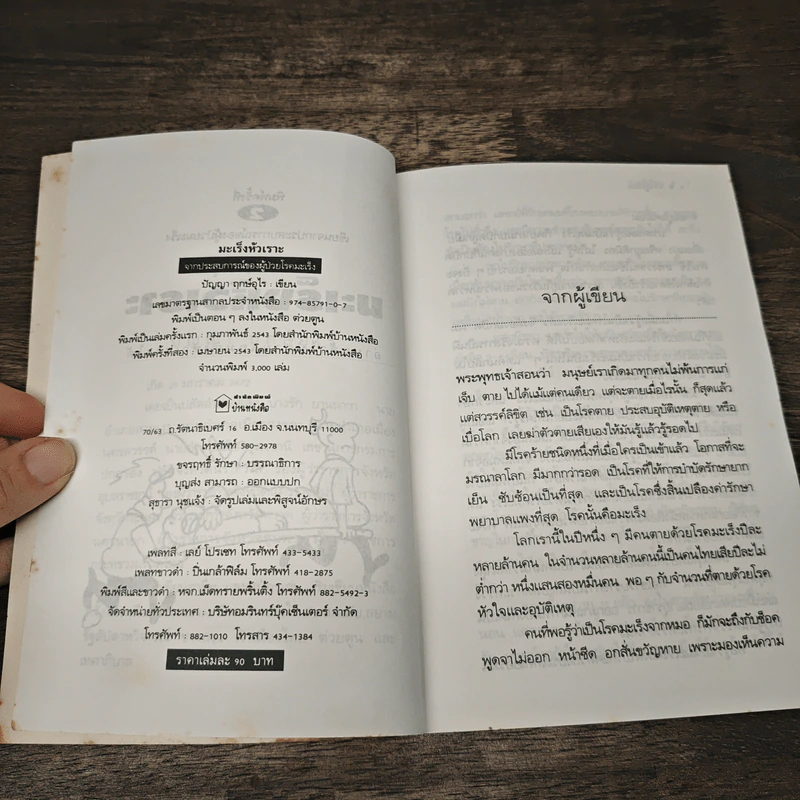 มะเร็งหัวเราะ
จากประสบการณ์ของผู้ป่วยโรคมะเร็ง
ปัญญา ฤกษ์อุไร : เขียน
เลขมาตรฐานสากลประจำหนังสือ : 974-85791-0-7
พิมพ์เป็นตอน ๆ ลงในหนังสือ ต่วยตูน
พิมพ์เป็นเล่มครั้งแรก : กุมภาพันธ์ 2543 โดยสำนักพิมพ์บ้านหนังสือ
พิมพ์ครั้งที่สอง : เมษายน 2543 โดยสำนักพิมพ์บ้านหนังสือ
จำนวนพิมพ์ 3,000 เล่ม
สำนักพิมพ์
บ้านหนังสือ
70/63 ถ.รัตนาธิเบศร์ 16 อ.เมือง จ.นนทบุรี 11000
โทรศัพท์ 580-2978
ขจรฤทธิ์ รักษา : บรรณาธิการ
บุญส่ง สามารถ : ออกแบบปก
สุธารา นุชแจ้ง : จัดรูปเล่มและพิสูจน์อักษร
เพลทสี : เลย์ โปรเซท โทรศัพท์ 433-5433
เพลทขาวดำ : ปิ่นเกล้าฟิล์ม โทรศัพท์ 418-2875
พิมพ์สีและขาวดำ : หจก.เม็ดทรายพริ้นติ้ง โทรศัพท์ 882-5492-3
จัดจำหน่ายทั่วประเทศ : บริษัทอมรินทร์บุ๊คเซ็นเตอร์ จำกัด
โทรศัพท์ : 882-1010 โทรสาร 434-1384
ราคาเล่มละ 90 บาท
จากผู้เขียน
พระพุทธเจ้าสอนว่า มนุษย์เราเกิดมาทุกคนไม่พ้นการแก่
เจ็บ ตาย ไปได้แม้แต่คนเดียว แต่จะตายเมื่อไรนั้น ก็สุดแล้ว
แต่สวรรค์ลิขิต เช่น เป็นโรคตาย ประสบอุบัติเหตุตาย หรือ
เบื่อโลก เลยฆ่าตัวตายเสียเองให้มันรู้แล้วรู้รอดไป
มีโรคร้ายชนิดหนึ่งที่เมื่อใครเป็นเข้าแล้ว โอกาสที่จะ
มรณาลาโลก มีมากกว่ารอด เป็นโรคที่ให้การบำบัดรักษายาก
เย็น ซับซ้อนเป็นที่สุด และเป็นโรคซึ่งสิ้นเปลืองค่ารักษา
พยาบาลแพงที่สุด โรคนั้นคือมะเร็ง
โลกเรานี้ในปีหนึ่ง ๆ มีคนตายด้วยโรคมะเร็งปีละ
หลายล้านคน ในจำนวนหลายล้านคนนี้เป็นคนไทยเสียปีละไม่
ต่ำกว่า หนึ่งแสนสองหมื่นคน พอ ๆ กับจำนวนที่ตายด้วยโรค
หัวใจและอุบัติเหตุ
คนที่พอรู้ว่าเป็นโรคมะเร็งจากหมอ ก็มักจะถึงกับช็อค
พูดจาไม่ออก หน้าซีด อกสั่นขวัญหาย เพราะมองเห็นความ